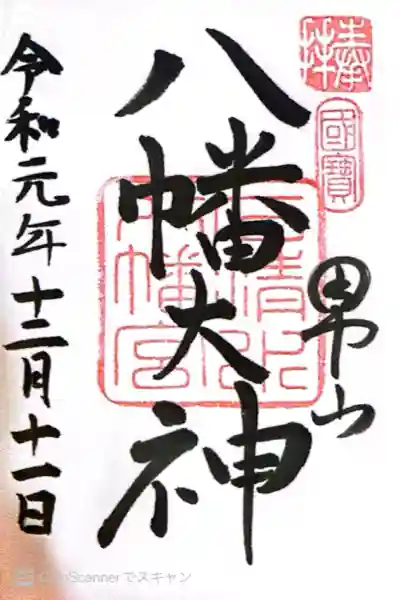 奉拝
國寶
男山
八幡大神
石清水
八幡宮
令和元年十二月十一日
CamScannerでスキャン